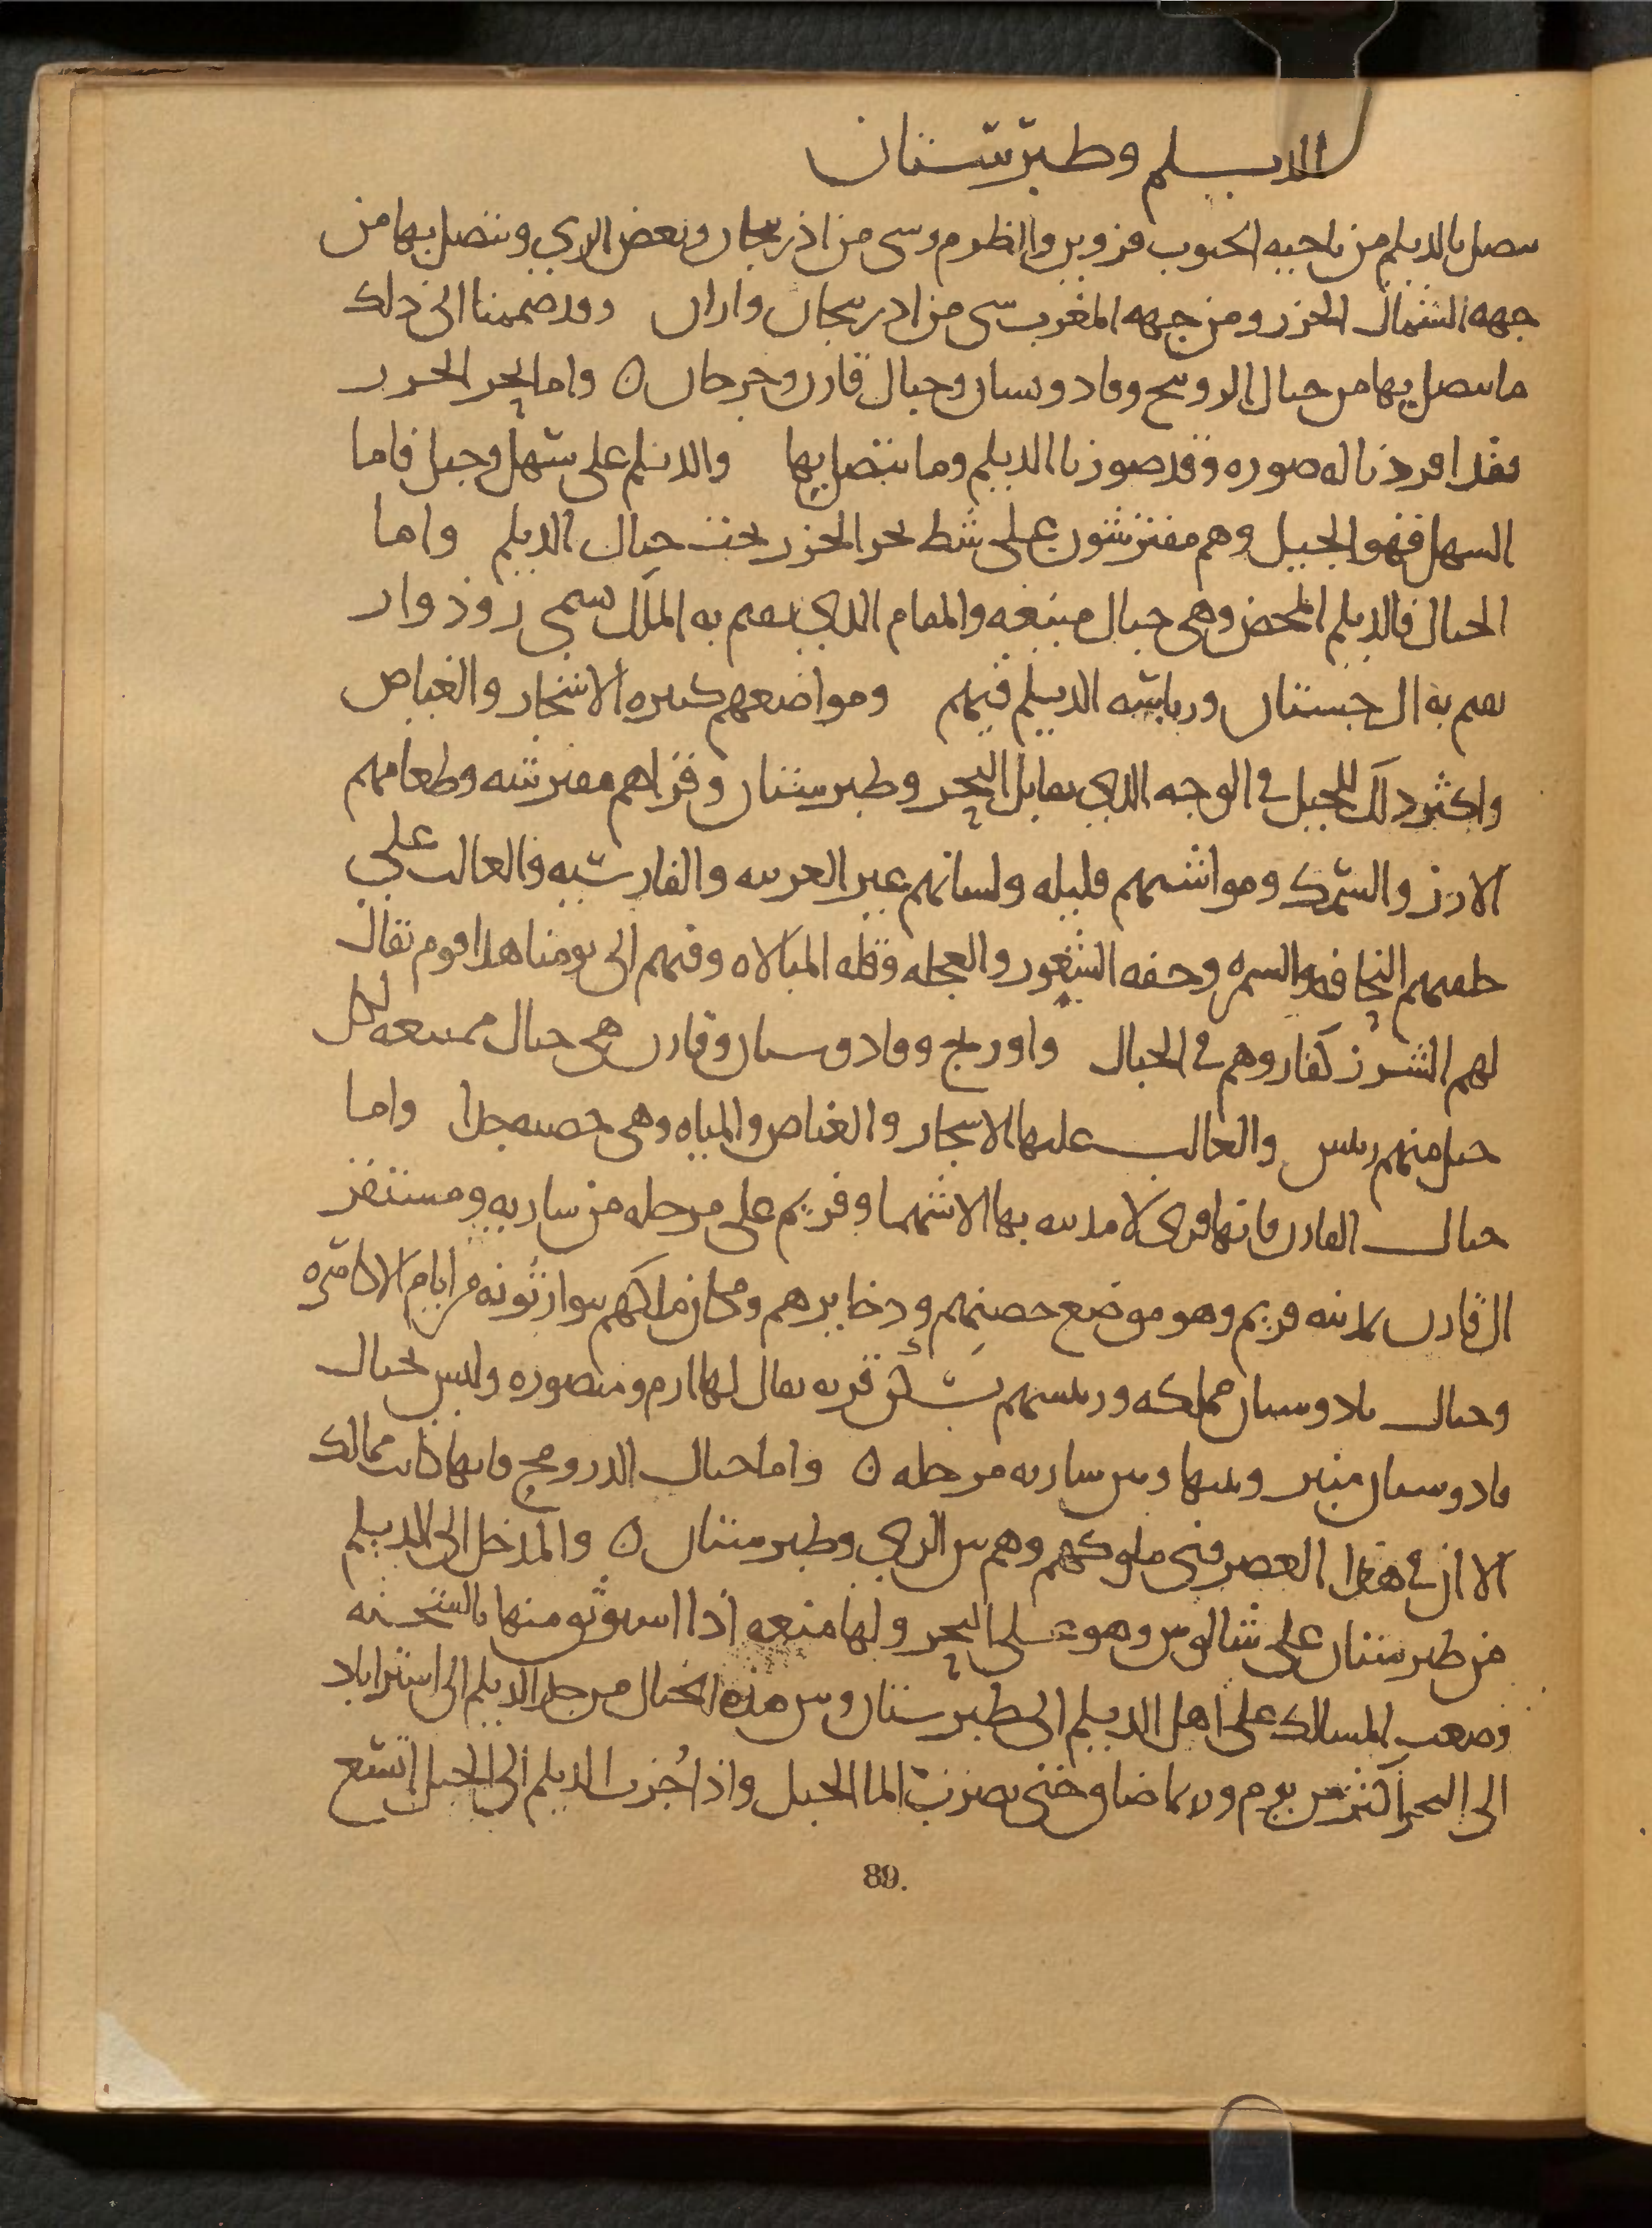 الديلم وطبرستان
يتصل بالديلم من ناحيه الجنوب قزوين والطرم وشى من اذربيجان وبعض الري ويتصل بها من
جهه الشمال الخزر ومن جهه المغرب شى من اذربيجان واران وقد ضممنا الى ذلك
ما يتصل بها من جبال الروبنج وفادوسبان وجبال قارن وجرجان ه واما بحر الخزر
فقد افردنا له صوره وقد صورنا الديلم وما يتصل بها والديلم على سهل وجبل فاما
السهل فهو الجيل وهم مفترشون على شط بحر الخزر تحت جبال الديلم واما
الجبال فالديلم المحض وهى جبال منيعه والمقام الذي يقيم به الملك يسمى روذوار
يقيم به ال جستان ورياسه الديلم فيهم ومواضعهم كثيره الاشجار والغياض
واكثر ذلك للجيل في الوجه الذي يقابل البحر وطبرستان وقراهم مفترشه وطعامهم
الارز والسمك ومواشيهم قليله ولسانهم غير العربيه والفارسيه والغالب على
خلقهم النحافه والسمره وخفه الشعور والعجله وقله المبالاه وفيهم الى يومنا هذا قوم يقال
لهم الشرز كفار وهم في الجبال واوربنج وفادوسبان وقارن هى جبال ممتنعه لكل
جبل منهم رييس والغالب عليها الاشجار والغياض والمياه وهى خصبه جدا واما
جبال القارن فانها قرى لا مدينه بها الا شهما وفريم على مرحله من ساريه ومستقر
ال قارن بمدينه فريم وهو موضع حصنهم وذخايرهم ومكان ملكهم يتوارثونه من ايام الاكاسره
وجبال بادوسبان مملكه ورييسهم يسكن قريه يقال لها ارم ومنصوره وليس بجبال
فادوسبان منبر وبينها وبين ساريه مرحله ه واما جبال الدروبنج فانها كانت ممالك
الا ان في هذا العصر فنى ملوكهم وهم بين الري وطبرستان ه والمدخل الى الديلم
من طبرستان على شالوس وهو على البحر ولها منعه اذا استوثق منها بالشحنه
وصعب المسالك على اهل الديلم الى طبرستان وبين هذه الجبال من حد الديلم الى استراباد
الى البحر اكثر من يوم وربما ضاق حتى يضرب الما الجبل واذا جزت الديلم الى الجيل اتسع
89.